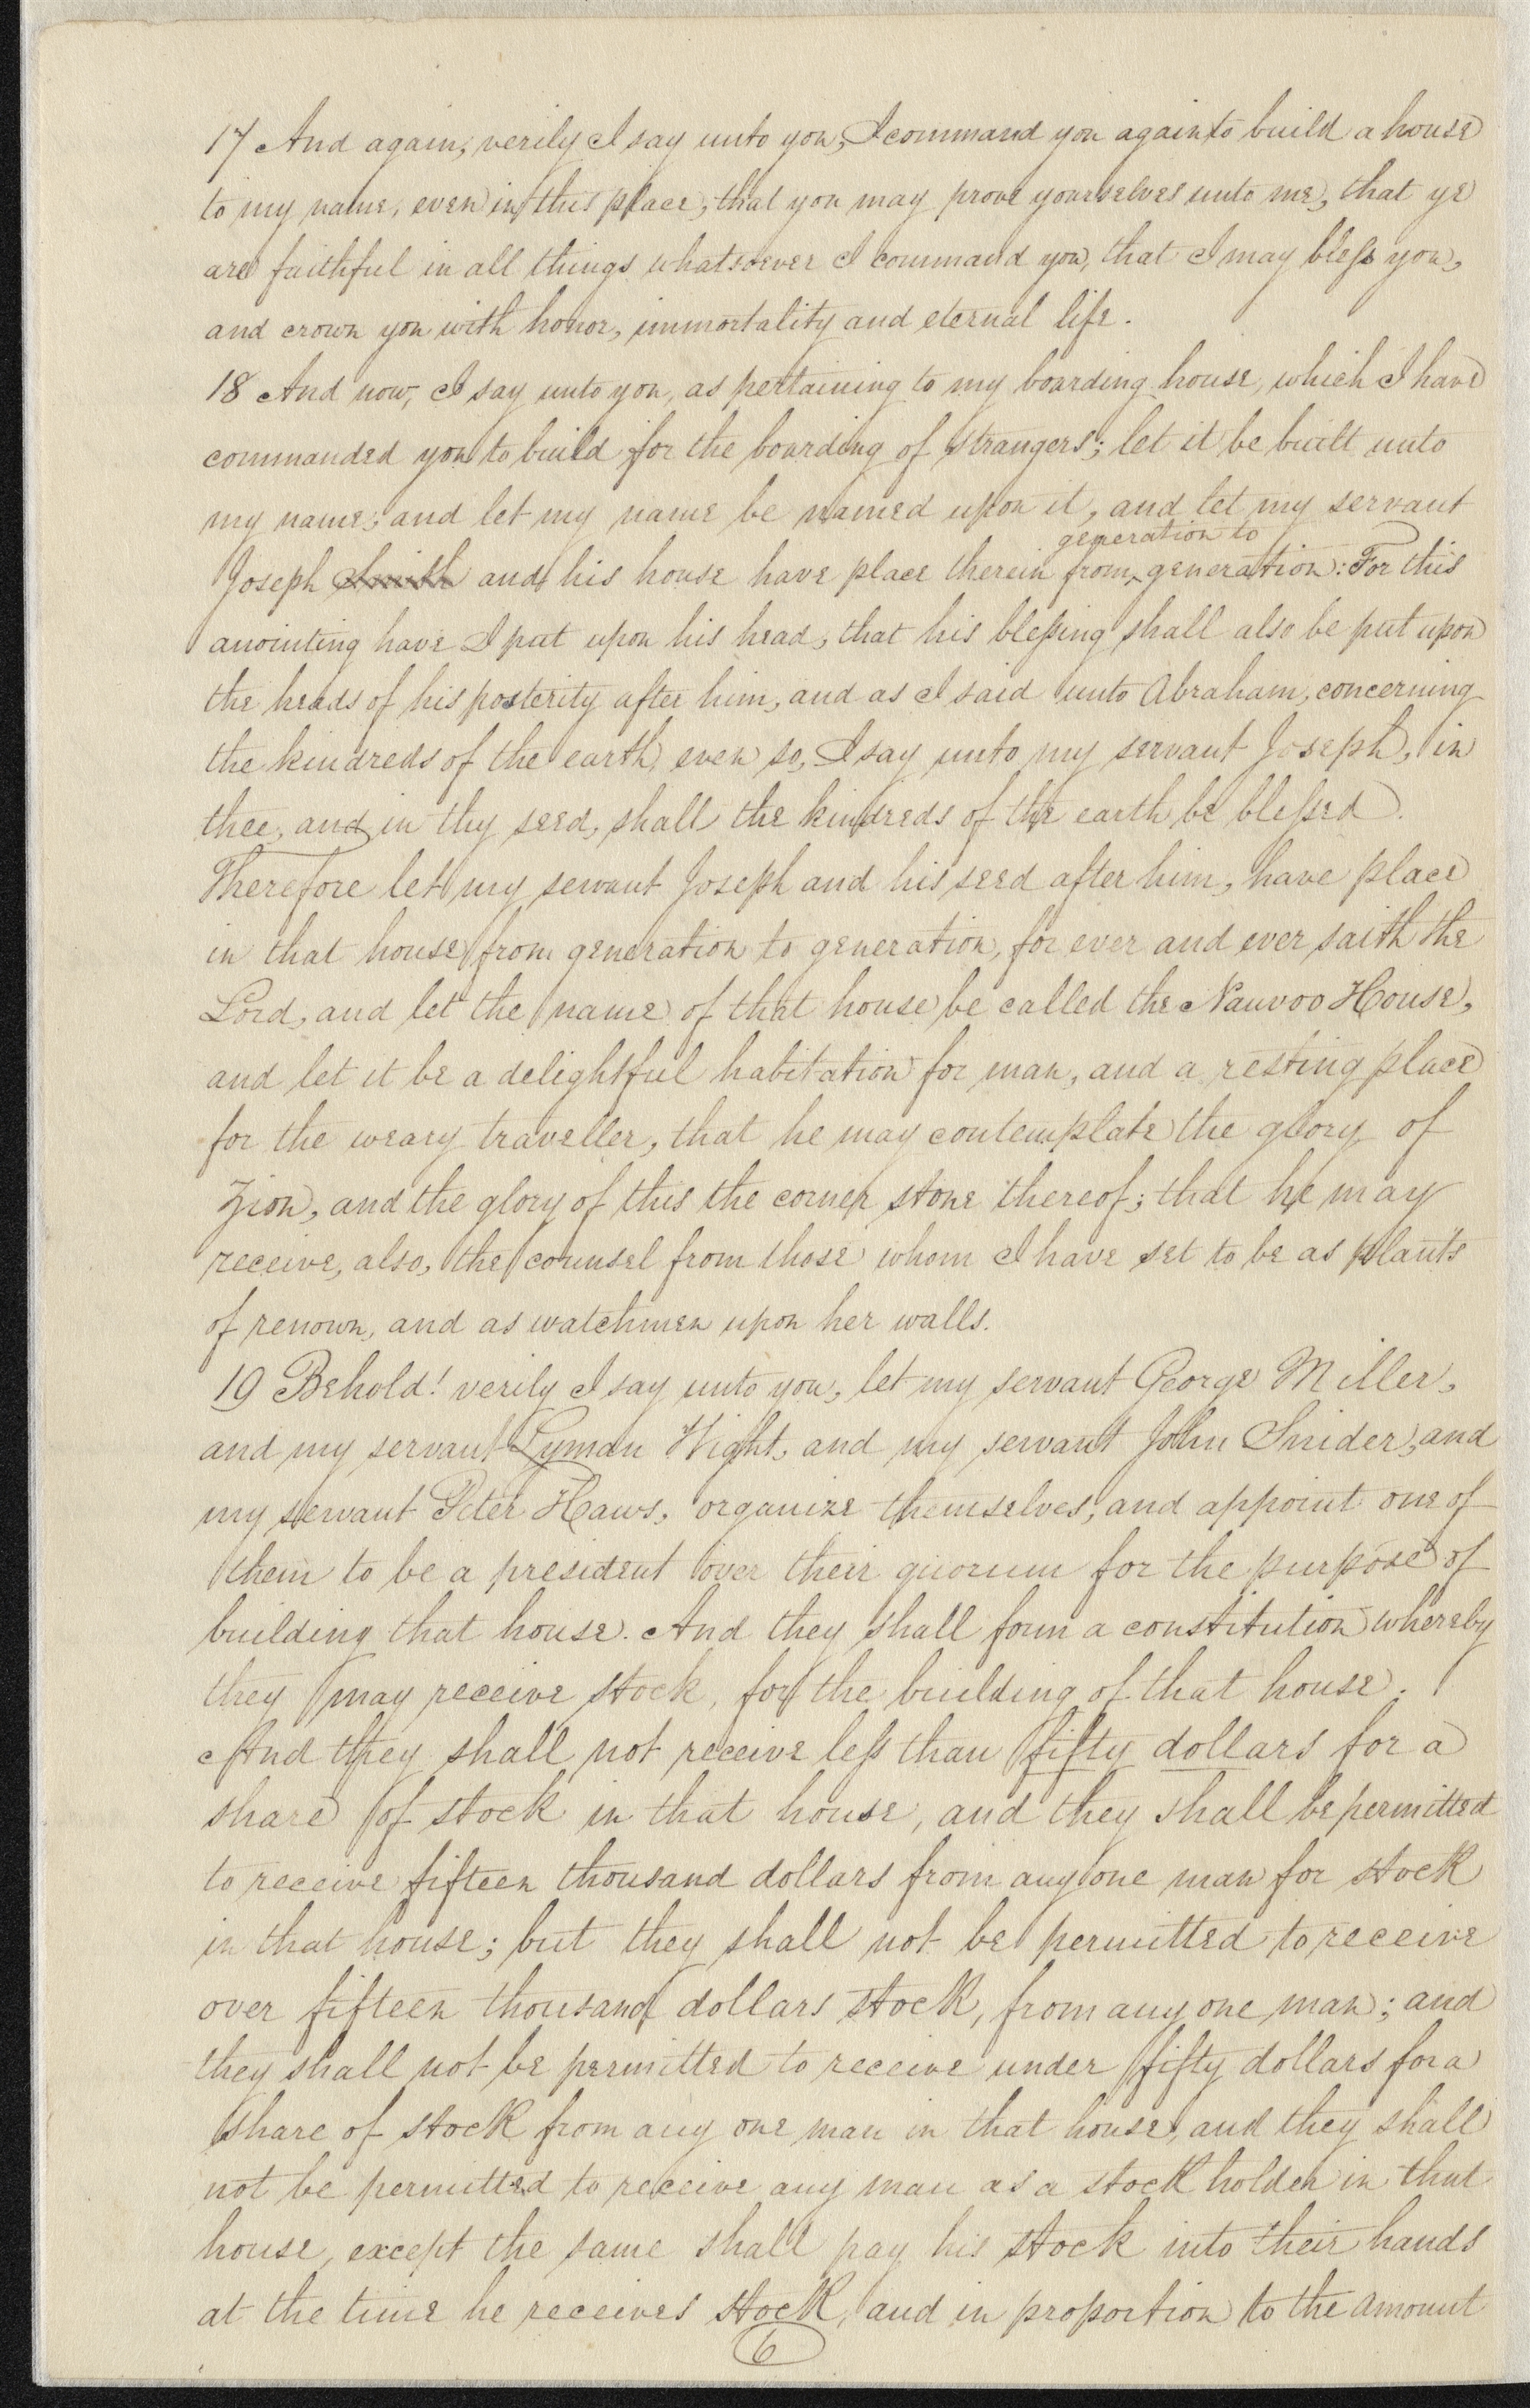 17 And again, verily I say unto you, I command you again to build a house
to my name, even in this place, that you may prove yourselves unto me, that ye
are faithful in all things whatsoever I command you, that I may bless you,
and crown you with honor, immortality and eternal life.
18 And now, I say unto you, as pertaining to my boarding house, which I have
commanded you to build for the boarding of strangers; let it be built unto
my name, and let my name be named upon it, and let my servant
generation to
Joseph Smith and his house have place therein from ^ generation: For this
anointing have I put upon his head, that his blessing shall also be put upon
the heads of his posterity after him, and as I said unto Abraham, concerning
the kindreds of the earth, even so, I say unto my servant Joseph, in
thee, and in thy seed, shall the kindreds of the earth be blessed.
Therefore let my servant Joseph and his seed after him, have place
in that house from generation to generation, for ever and ever saith the
Lord, and let the name of that house be called the Nauvoo House,
and let it be a delightful habitation for man, and a resting place
for the weary traveller, that he may contemplate the glory of
Zion, and the glory of this the corner stone thereof; that he may
receive, also, the counsel from those whom I have set to be as plants
of renown, and as watchmen upon her walls.
19 Behold! verily I say unto you, let my servant George Miller,
and my servant Lyman Wight, and my servant John Snider, and
my servant Peter Haws, organize themselves, and appoint one of
them to be a president over their quorum for the purpose of
building that house. And they shall form a constitution whereby
they may receive stock, for the building of that house.
And they shall not receive less than fifty dollars for a
share of stock in that house, and they shall be permitted
to receive fifteen thousand dollars from any one man for stock
in that house; but they shall not be permitted to receive
over fifteen thousand dollars stock, from any one man; and
they shall not be permitted to receive under fifty dollars for a
share of stock from any one man in that house, and they shall
not be permitted to receive any man as a stock holder in that
house, except the same shall pay his stock into their hands
at the time he receives stock, and in proportion to the amount
6